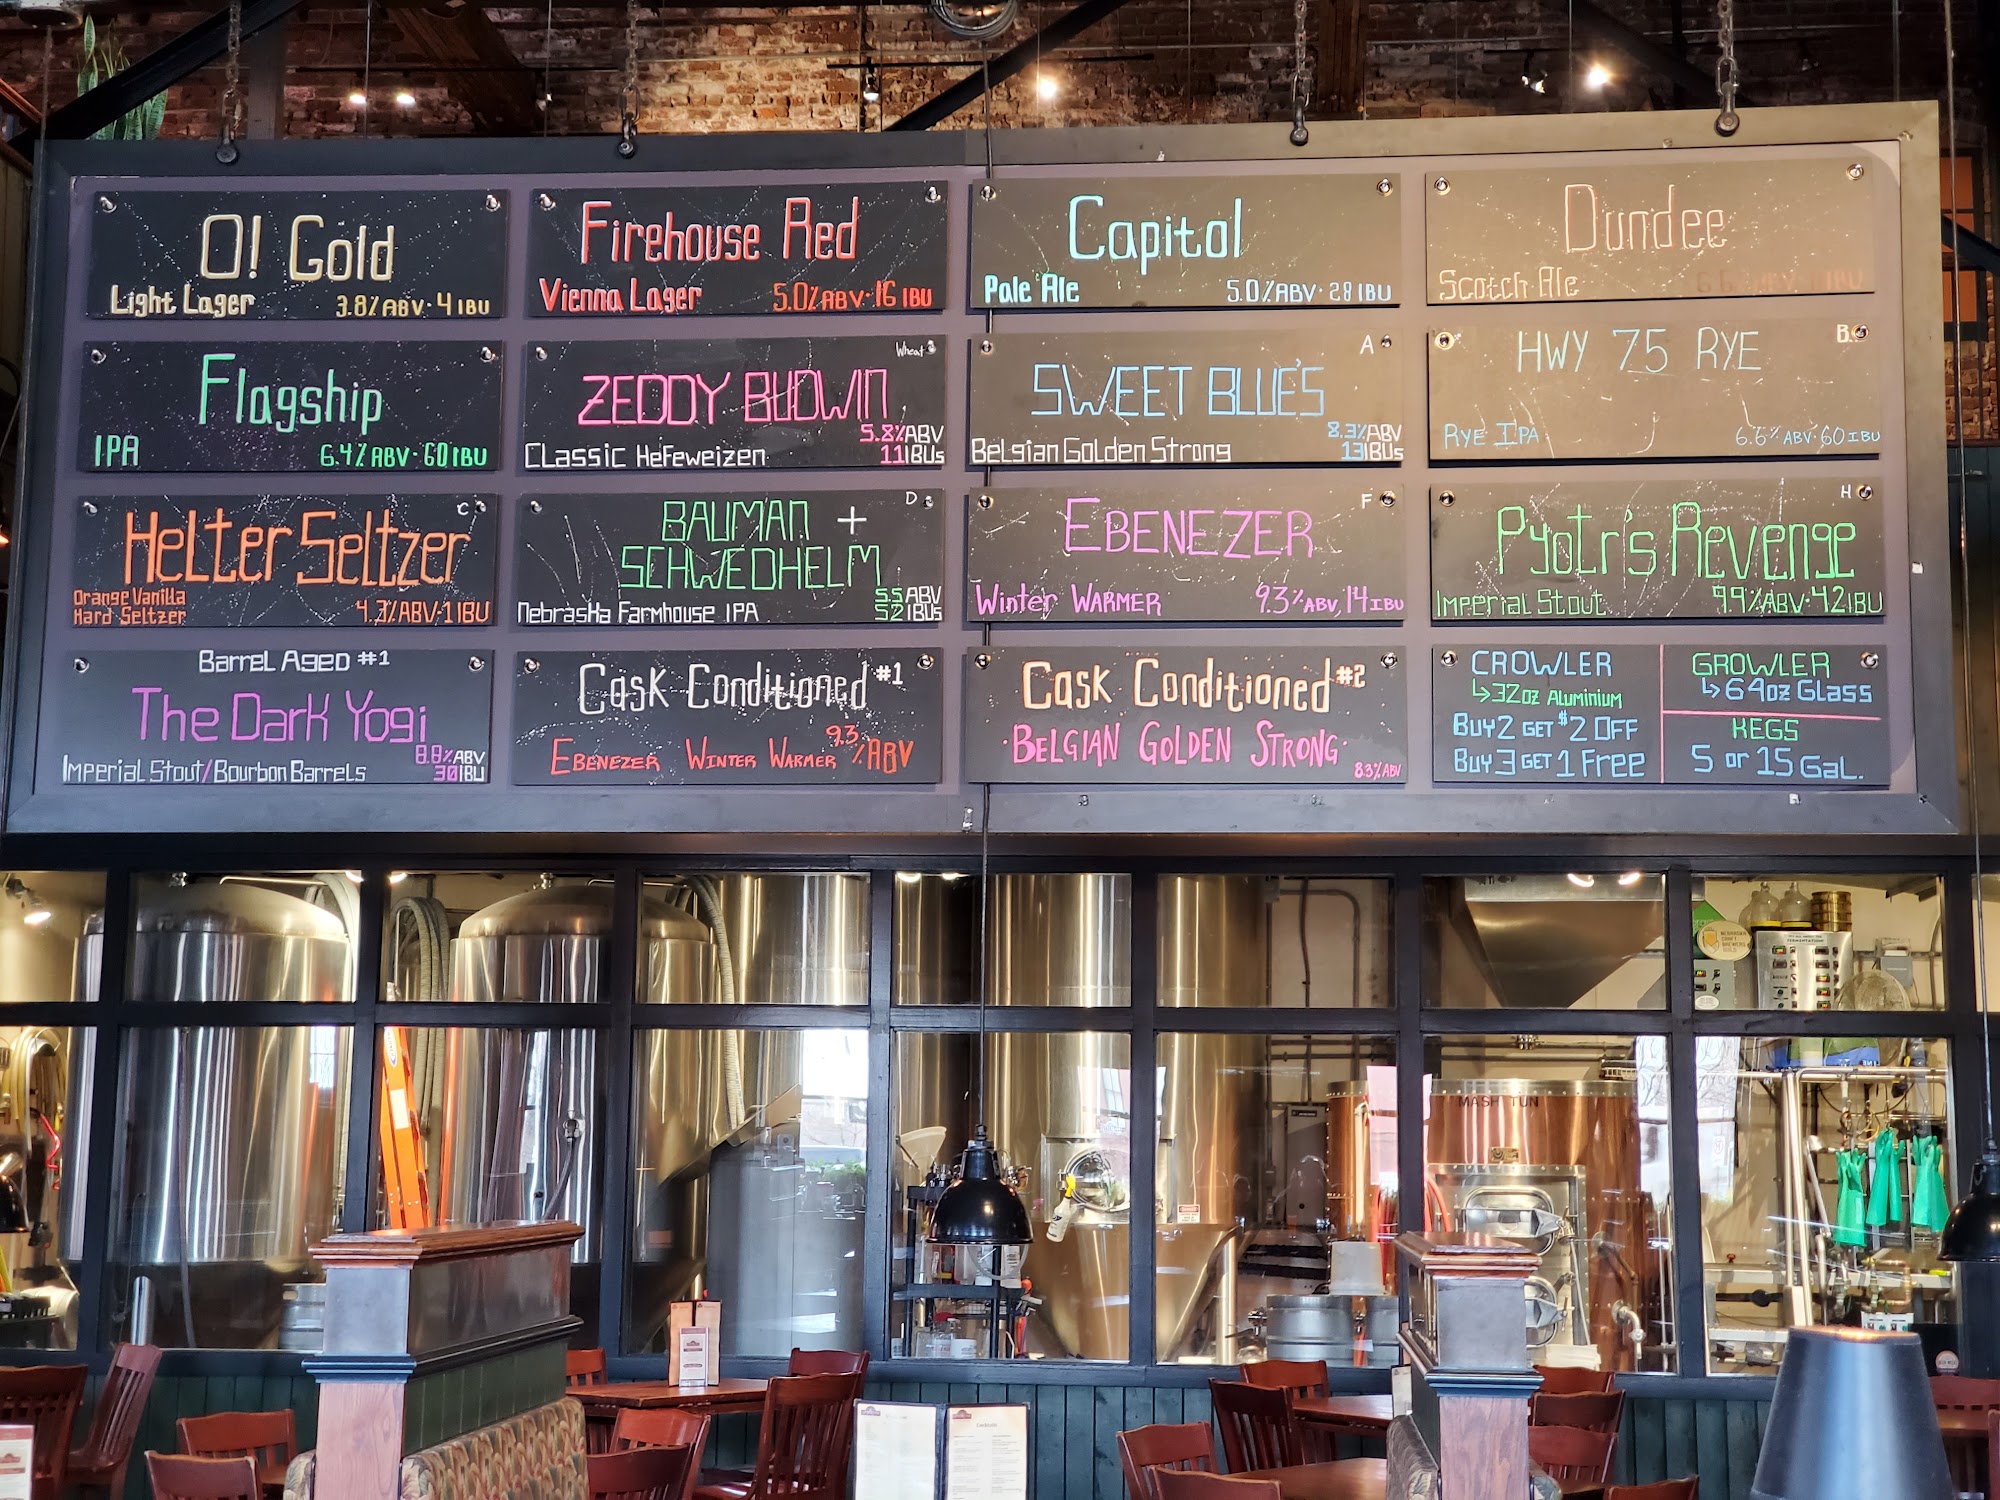 O! Gold
Light Lager 3.8% ABV · 4 IBU
Firehouse Red
Vienna Lager 5.0% ABV · 16 IBU
Capitol
Pale Ale 5.0% ABV · 28 IBU
Dundee
Scotch Ale
Flagship
IPA 6.4% ABV · 60 IBU
Wheat
ZEDDY BUDWIN
5.8% ABV
Classic Hefeweizen 11 IBUs
A
SWEET BLUE'S
8.3% ABV
Belgian Golden Strong 13 IBUs
B
HWY 75 RYE
Rye IPA 6.6% ABV · 60 IBU
C
Helter Seltzer
Orange Vanilla
Hard Seltzer 4.3% ABV · 1 IBU
D
BAUMAN +
SCHWEDHELM
5.5 ABV
Nebraska Farmhouse IPA 52 IBUs
F
EBENEZER
Winter WARMER 9.3% ABV, 14 IBU
H
Pyotr's Revenge
Imperial Stout 9.9% ABV · 42 IBU
Barrel Aged #1
The Dark Yogi
8.8% ABV
Imperial Stout/Bourbon Barrels 30 IBU
Cask Conditioned #1
EBENEZER WINTER WARMER 9.3 % ABV
Cask Conditioned #2
· BELGIAN GOLDEN STRONG ·
8.3% ABV
CROWLER
↳ 32oz Aluminium
Buy 2 GET $2 OFF
Buy 3 GET 1 Free
GROWLER
↳ 64oz Glass
KEGS
5 or 15 Gal.
MASH TUN